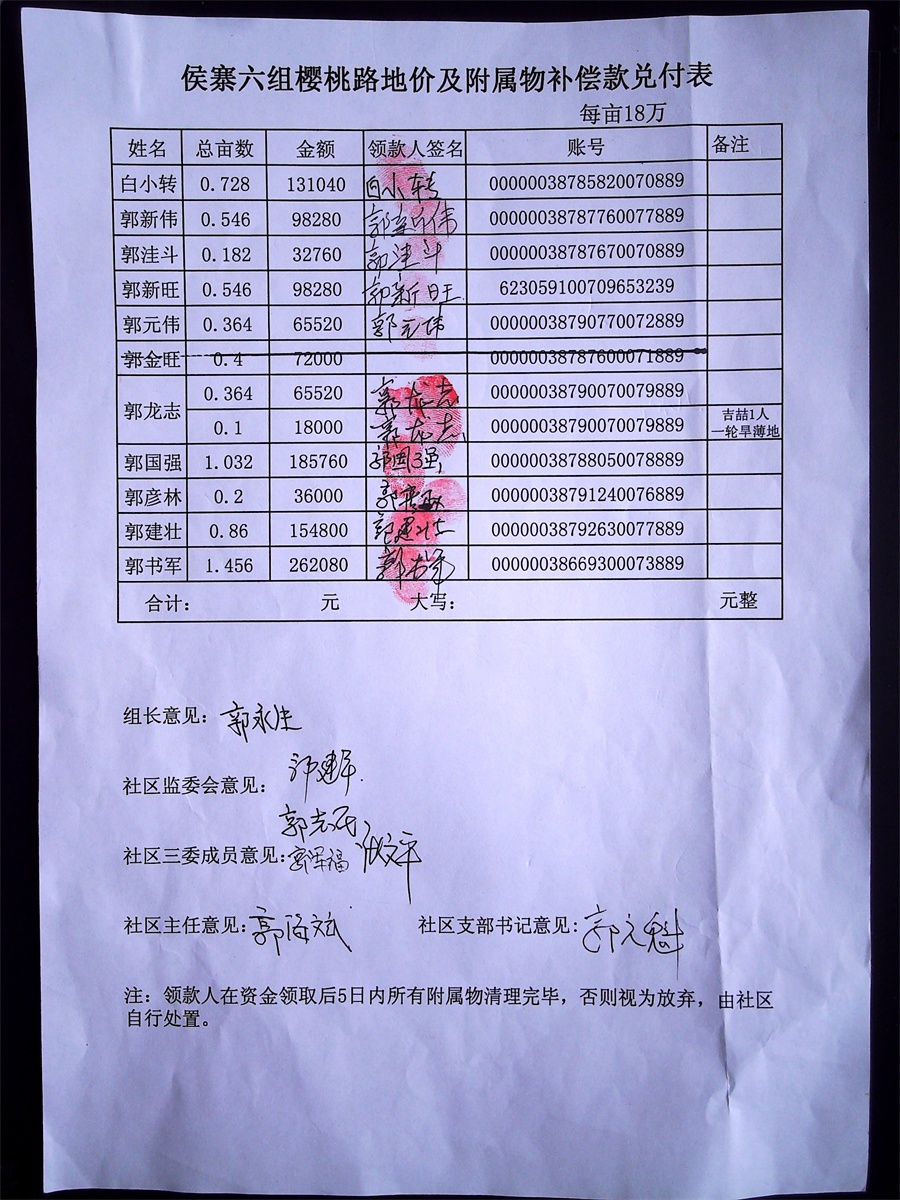 侯寨六组樱桃路地价及附属物补偿款兑付表
每亩18万
姓名 总亩数 金额 领款人签名 账号 备注
白小转 0.728 131040 白小转 00000038785820070889
郭新伟 0.546 98280 郭新伟 00000038787760077889
郭洼斗 0.182 32760 郭洼斗 00000038787670070889
郭新旺 0.546 98280 郭新旺 623059100709653239
郭元伟 0.364 65520 郭元伟 00000038790770072889
郭金旺 0.4 72000 00000038787600071889
郭龙志 0.364 65520 郭龙志 00000038790070079889
0.1 18000 郭龙志 00000038790070079889 吉喆1人
一轮旱薄地
郭国强 1.032 185760 郭国强 00000038788050078889
郭彦林 0.2 36000 郭彦林 00000038791240076889
郭建壮 0.86 154800 郭建壮 00000038792630077889
郭书军 1.456 262080 郭书军 00000038669300073889
合计： 元 大写： 元整
组长意见：郭永生
社区监委会意见：
郭志民
社区三委成员意见：郭军福
社区主任意见：郭海斌 社区支部书记意见：郭元魁
注：领款人在资金领取后5日内所有附属物清理完毕，否则视为放弃，由社区
自行处置。